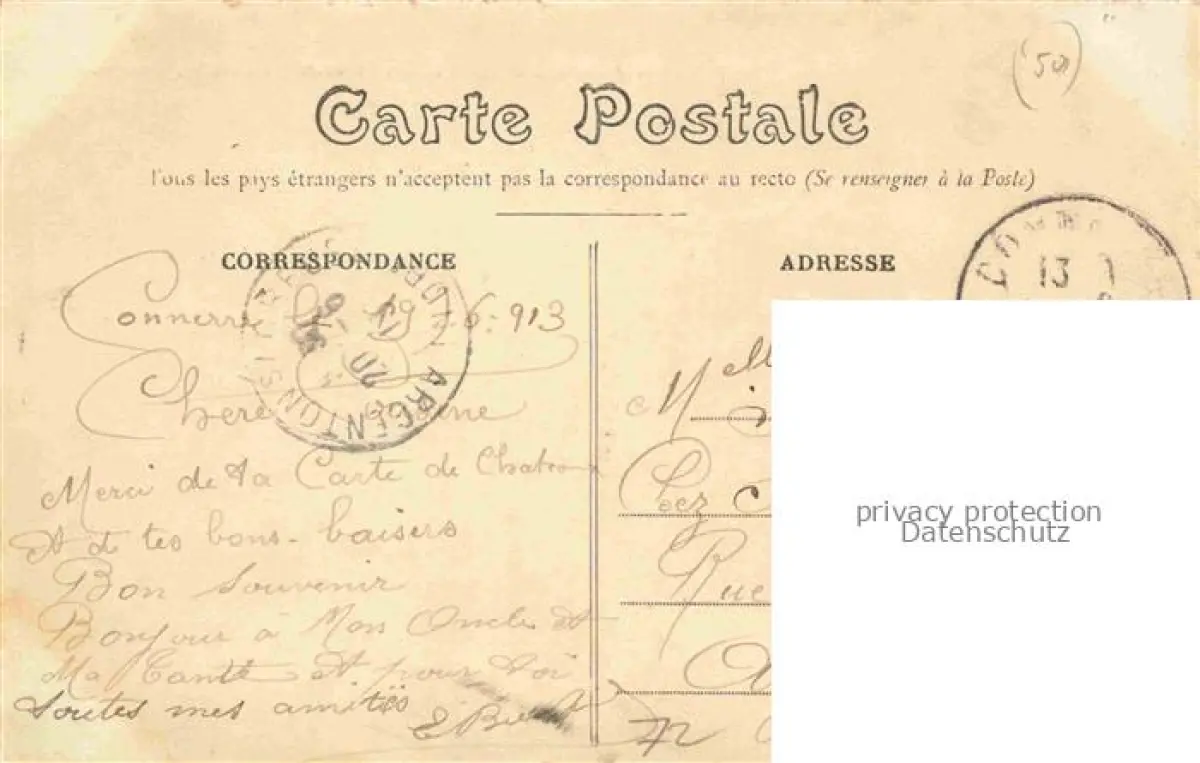 (501)
Carte Postale
Tous les pays étrangers n'acceptent pas la correspondance au recto (Se renseigner à la Poste)
CORRESPONDANCE
ADRESSE
13
Connerré le 19-6-913
Chère
Merci de ta Carte de
Et de tes bons baisers
Bon souvenir
Bonjour à Mon Oncle et
Ma Tante et pour toi
toutes mes amitiés
ARGENTON S
Melle
Chez
Rue
privacy protection
Datenschutz